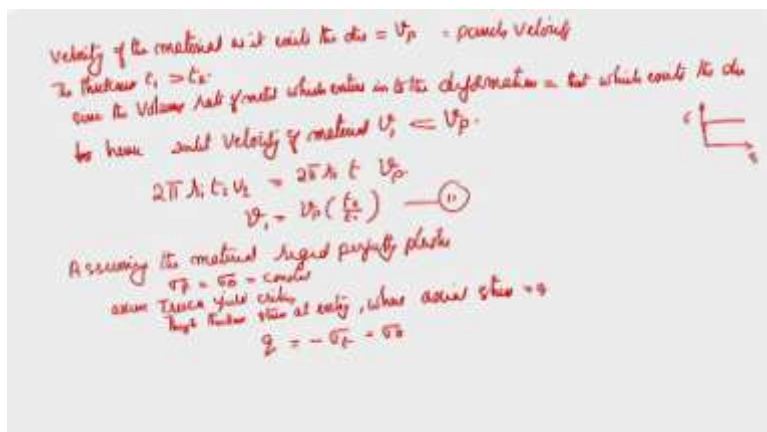 Velocity of the material as it exits the die = Vp = punch velocity
The thickness t1 > t2.
since the Volume rate of metal which enters in to the deformation = that which exits the die
to have inlet Velocity of material V1 < Vp.
2π r1 t1 v1 = 2π r1 t Vp
v1 = Vp (t2/t1) — 11
Assuming the material rigid perfectly plastic
σf = σ0 = constant
assume Tresca yield criteria
thickness stress at entry, where axial stress = 0
q = - σt = σ0
σ
ε